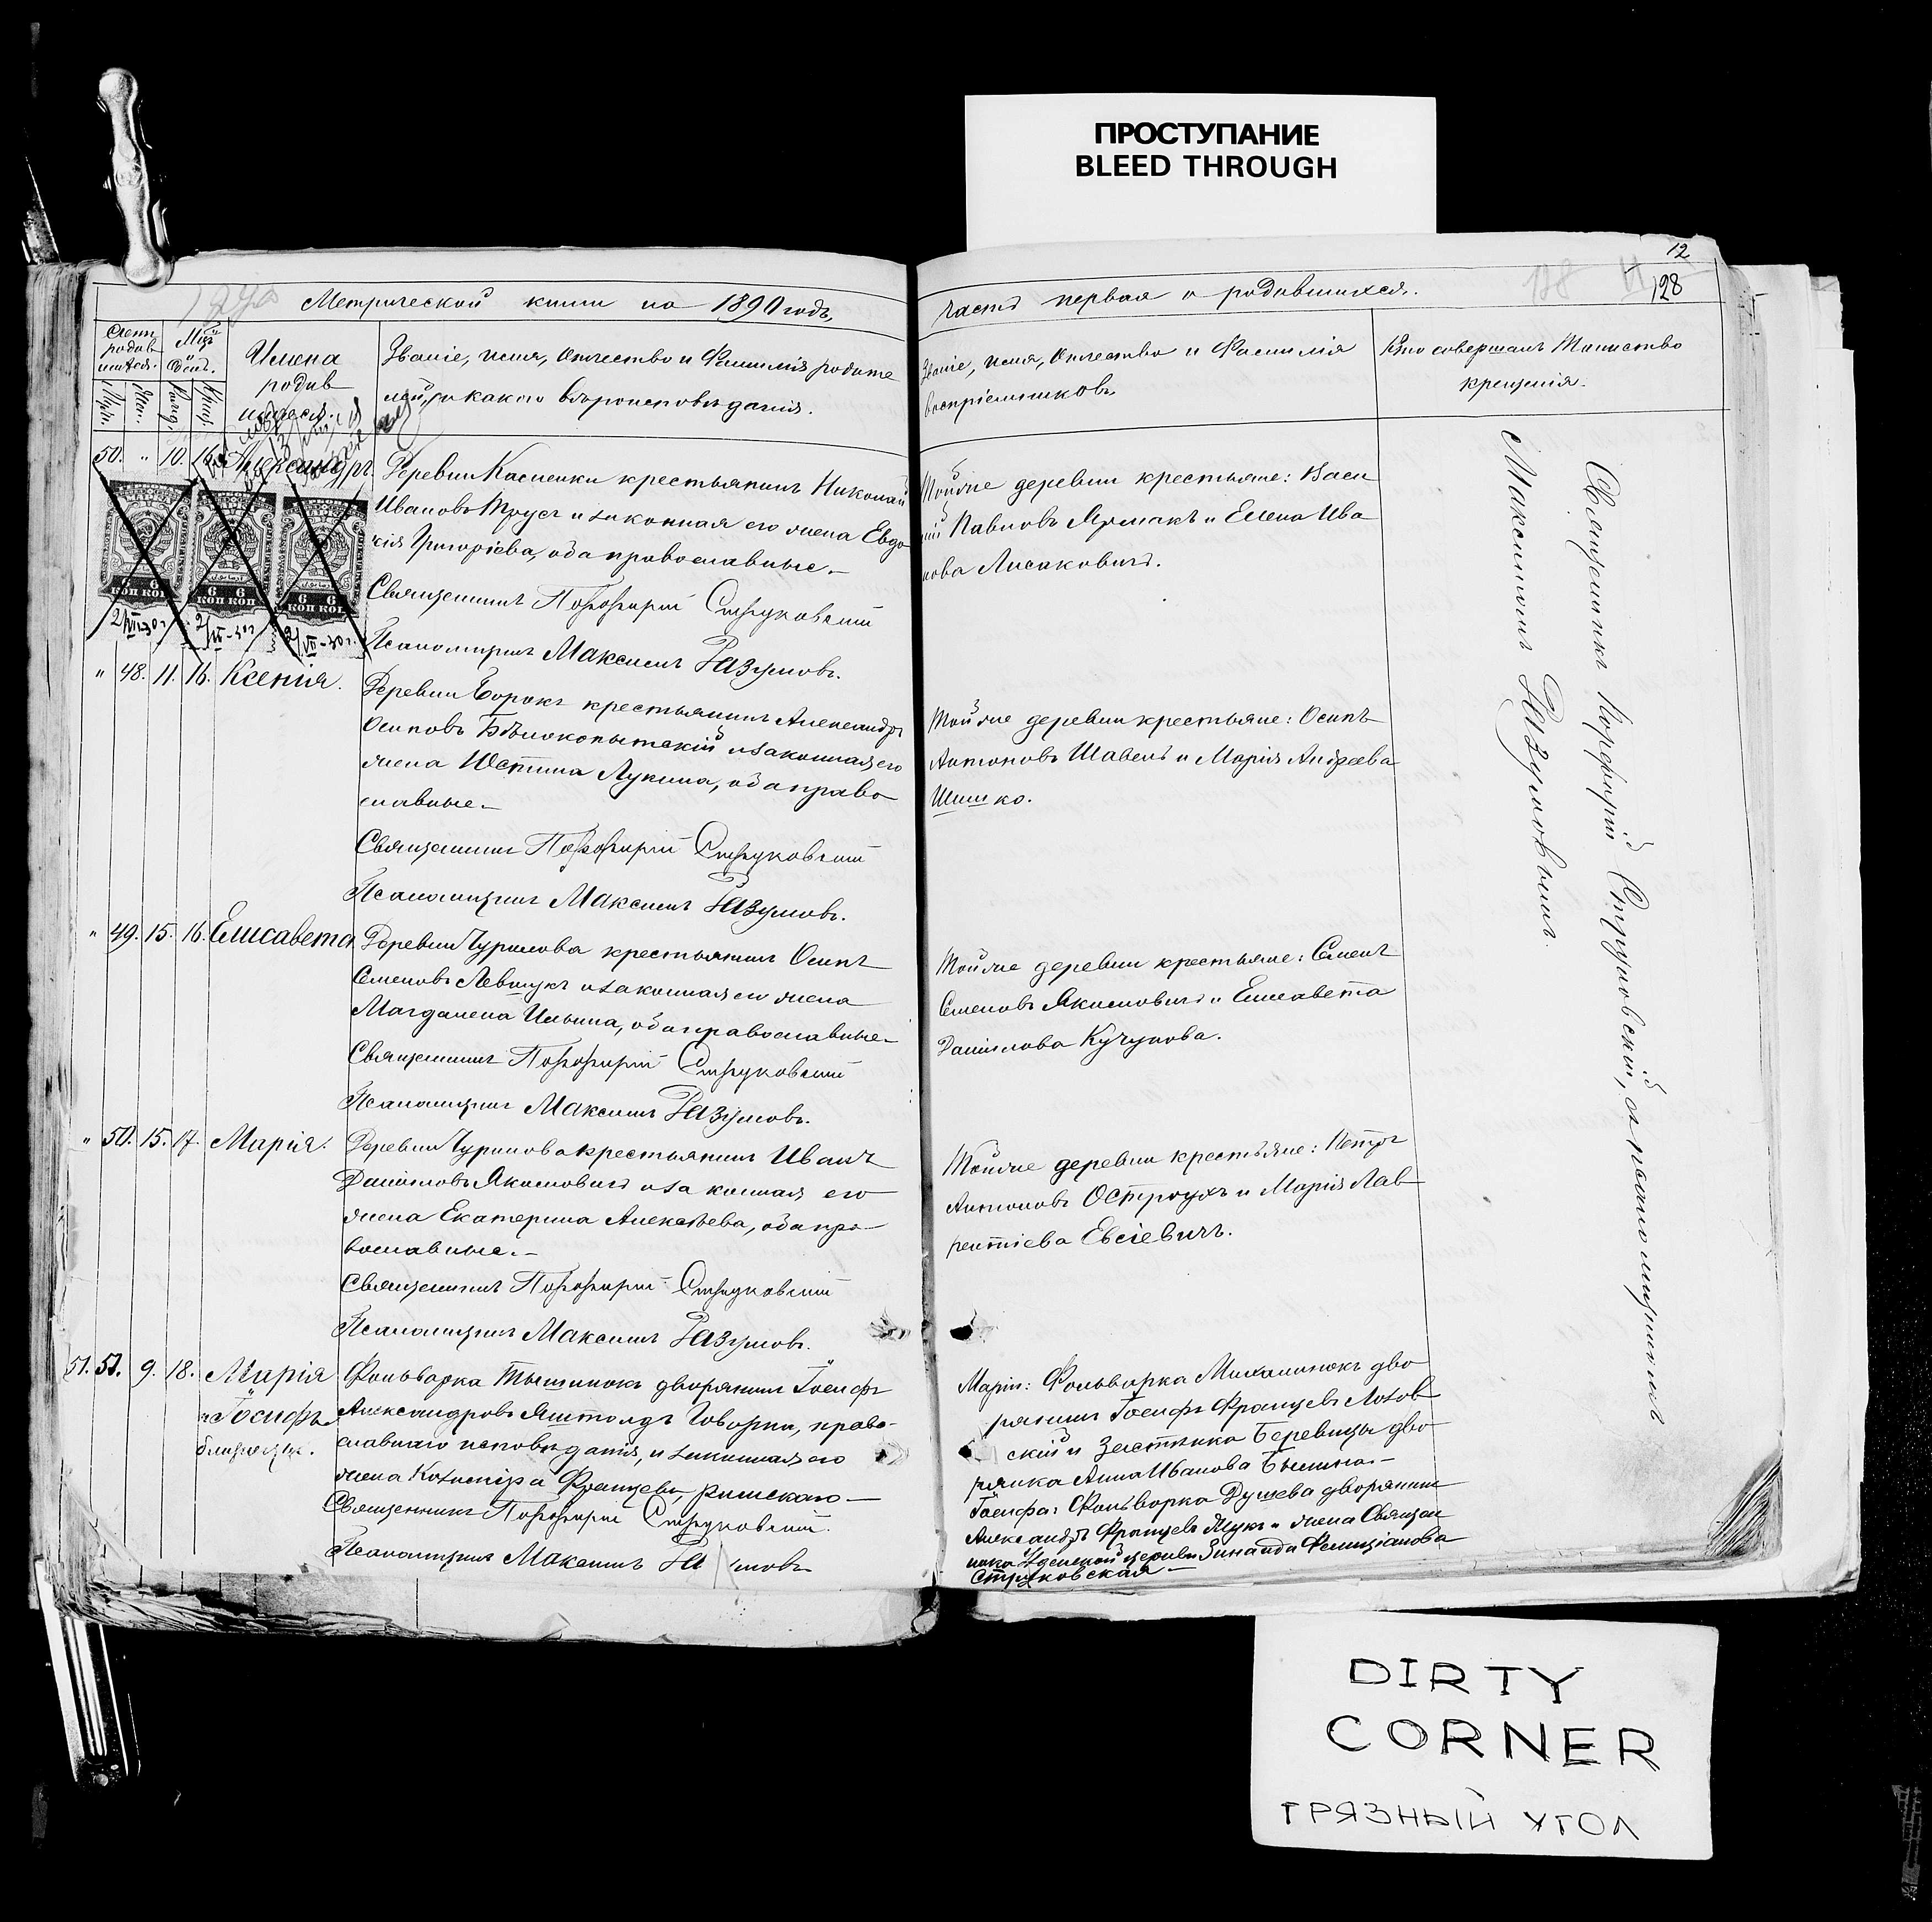 ПРОСТУПАНИЕ
BLEED THROUGH
12
128
Метрической книги на 1890 годъ,
часть первая о родившихся.
Счетъ родив шихся.
Мѣс. День.
Имена
родив
шихся.
Званіе, имя, отчество и фамилія родите
лей, и какого вѣроисповѣданія.
Званіе, имя, отчество и фамилія
воспріемниковъ
Кто совершалъ таинство
крещенія.
50. " 10. 16. Александръ.
Деревни крестьянинъ Николай
Ивановъ Трусъ и законная его жена Евдо
кія Григоріева, оба православные.
Священникъ Порфирій Струковскій
Псаломщикъ Максимъ Разумовъ.
Той же деревни крестьяне: Васи
лій Павловъ Ярмакъ и Елена Ива
нова Лисаковичъ.
6 6
КОП КОП
6 6
КОП КОП
6 6
КОП КОП
2/VII-30 г.
2/VII-30 г.
2/VII-30 г.
" 48. 11. 16. Ксенія.
Деревни Борокъ крестьянинъ Александръ
Осиповъ Бѣлокопытскій и законная его
жена Юстина Лукина, оба право
славные.
Священникъ Порфирій Струковскій
Псаломщикъ Максимъ Разумовъ.
Той же деревни крестьяне: Осипъ
Антоновъ Шавель и Марія Андреева
Шишко.
" 49. 15. 16. Елисавета
Деревни Чурилова крестьянинъ Осипъ
Семеновъ Левшукъ и законная его жена
Магдалена Ильина, оба православные.
Священникъ Порфирій Струковскій
Псаломщикъ Максимъ Разумовъ.
Той же деревни крестьяне: Семенъ
Семеновъ Якимовичъ и Елисавета
Даніилова Кучукова.
" 50. 15. 17. Марія.
Деревни Чурилова крестьянинъ Иванъ
Даніиловъ Якимовичъ и законная его
жена Екатерина Алексѣева, оба пра
вославные.
Священникъ Порфирій Струковскій
Псаломщикъ Максимъ Разумовъ.
Той же деревни крестьяне: Петръ
Антоновъ Остроухъ и Марія Лав
рентіева Евсіевичъ.
51. 51. 9. 18. Марія
и Іосифъ
близнецы.
Фольварка дворянинъ Іосифъ
Александровъ Яштолдъ Говорко, право
славнаго исповѣданія, и законная его
жена Казимира Францева, римскаго
Священникъ Порфирій Струковскій.
Псаломщикъ Максимъ Разумовъ
Маріи: Фольварка Михалинокъ дво
рянинъ Іосифъ Францевъ Лозов
скій и Застѣнка Беревицы дво
рянка Анна Иванова
Іосифа: Фольварка Душева дворянинъ
Александръ Францевъ и жена Священ
ника церкви Зинаида Фелиціанова
Струковская
Священникъ Порфирій Струковскій, съ псаломщикомъ
Максимомъ Разумовымъ.
DIRTY
CORNER
ГРЯЗНЫЙ УГОЛ